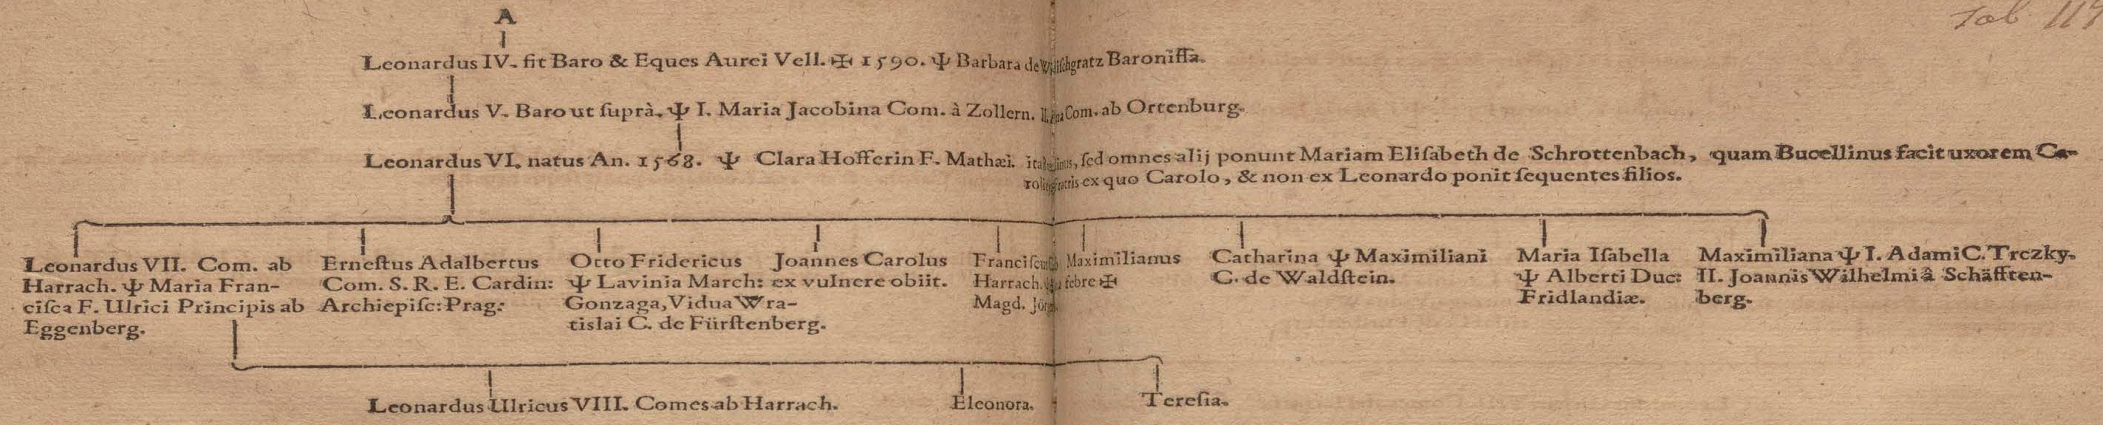 A
Tab 119
Leonardus IV. fit Baro & Eques Aurei Vell. ✠ 1590. Ψ Barbara de Windischgratz Baronissa.
Leonardus V. Baro ut suprà. Ψ I. Maria Jacobina Com. à Zollern. II. Com. ab Ortenburg.
Leonardus VI. natus An. 1568. Ψ Clara Hofferin F. Mathæi. ita, sed omnes alij ponunt Mariam Elisabeth de Schrottenbach, quam Bucellinus facit uxorem Ca-
roli fratris ex quo Carolo, & non ex Leonardo ponit sequentes filios.
Leonardus VII. Com. ab
Harrach. Ψ Maria Fran-
cisca F. Ulrici Principis ab
Eggenberg.
Ernestus Adalbertus
Com. S. R. E. Cardin:
Archiepisc: Prag:
Otto Fridericus
Ψ Lavinia March:
Gonzaga, Vidua Wra-
tislai C. de Fürstenberg.
Joannes Carolus
ex vulnere obiit.
Franciscus
Harrach.
Magd.
Maximilianus
febre ✠
Catharina Ψ Maximiliani
C. de Waldstein.
Maria Isabella
Ψ Alberti Duc:
Fridlandiæ.
Maximiliana Ψ I. Adami C. Trczky.
II. Joannis Wilhelmi â Schäfften-
berg.
Leonardus Ulricus VIII. Comes ab Harrach.
Eleonora.
Teresia.